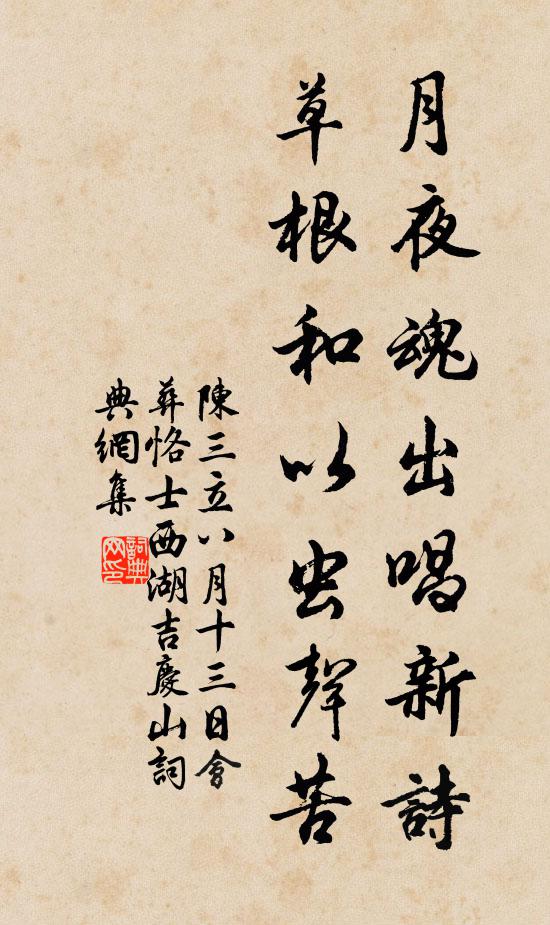 月夜魂出唱新詩
草根和以虫聲苦
陳三立八月十三日會
葬恪士西湖吉慶山詞
典網集
詞典
网印